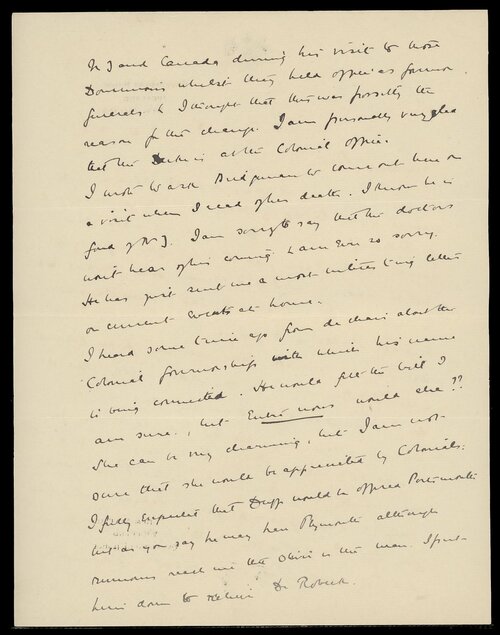 N Z and Canada during his visit to those
Dominions whilst they held office as Governor
Generals & I thought that this was possibly the
reason for the change. I am personally very glad
that the Duke is at the Colonial Office.
I wrote to ask Bridgeman to come out here on
a visit when I read of his death. I know he is
fond of N Z. I am sorry to say that the doctors
won't hear of his coming & am ever so sorry.
He has just sent me a most interesting letter
on current events at home.
I heard some time ago from de Chair about the
Colonial Governorships with which his name
is being connected. He would fill the bill I
am sure, but Entre nous would else??
She can be very charming, but I am not
sure that she would be appreciated by Colonials.
I fully expected that Duff would be offered Portsmouth
but as you say he may have Plymouth although
rumours reach me that Oliver is the man. I put
him down to relieve De Robeck.